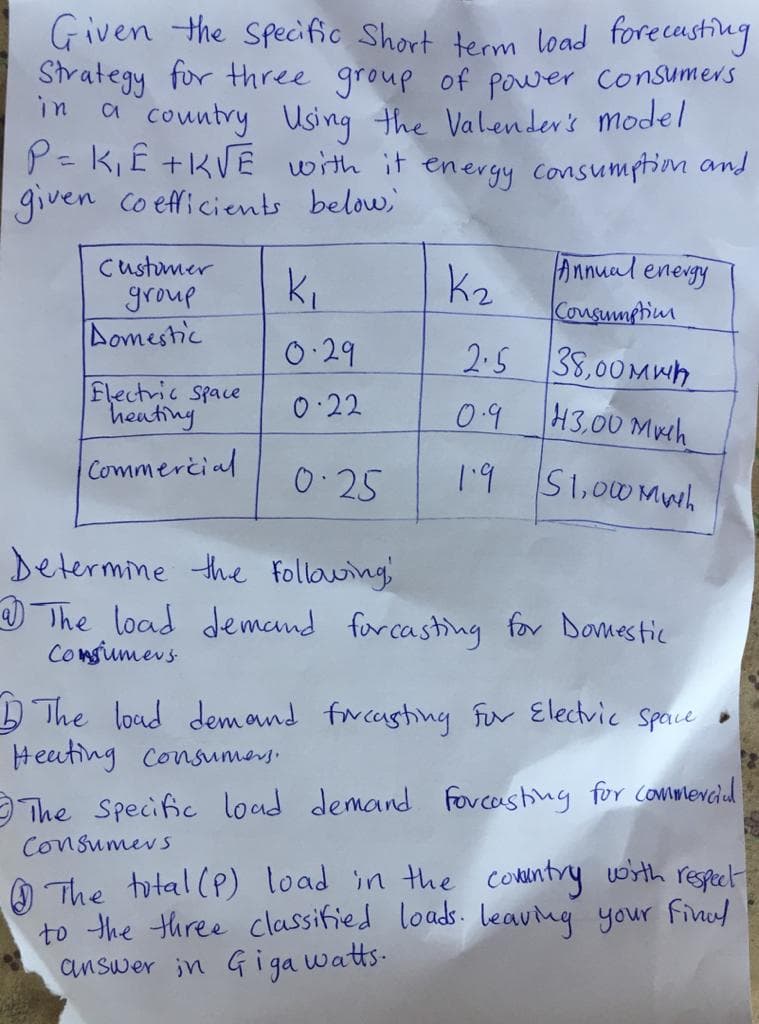 Given the Specific Short term load forecasting
Strategy for three group of power consumers
in a country Using the Valender's model
P = K₁Ē + K√Ē with it energy consumption and
given coefficients below;
Customer group K₁ K₂ Annual energy Consumption
Domestic 0.29 2.5 38,00 Mwh
Electric space heating 0.22 0.9 43,00 Mwh
Commercial 0.25 1.9 51,000 Mwh
Determine the following;
a) The load demand forcasting for Domestic
Consumers.
b) The load demand forcasting for Electric Space
Heating consumers.
c) The Specific load demand forcasting for commercial
Consumers
d) The total (P) load in the country with respect
to the three classified loads. leaving your final
answer in Giga watts.